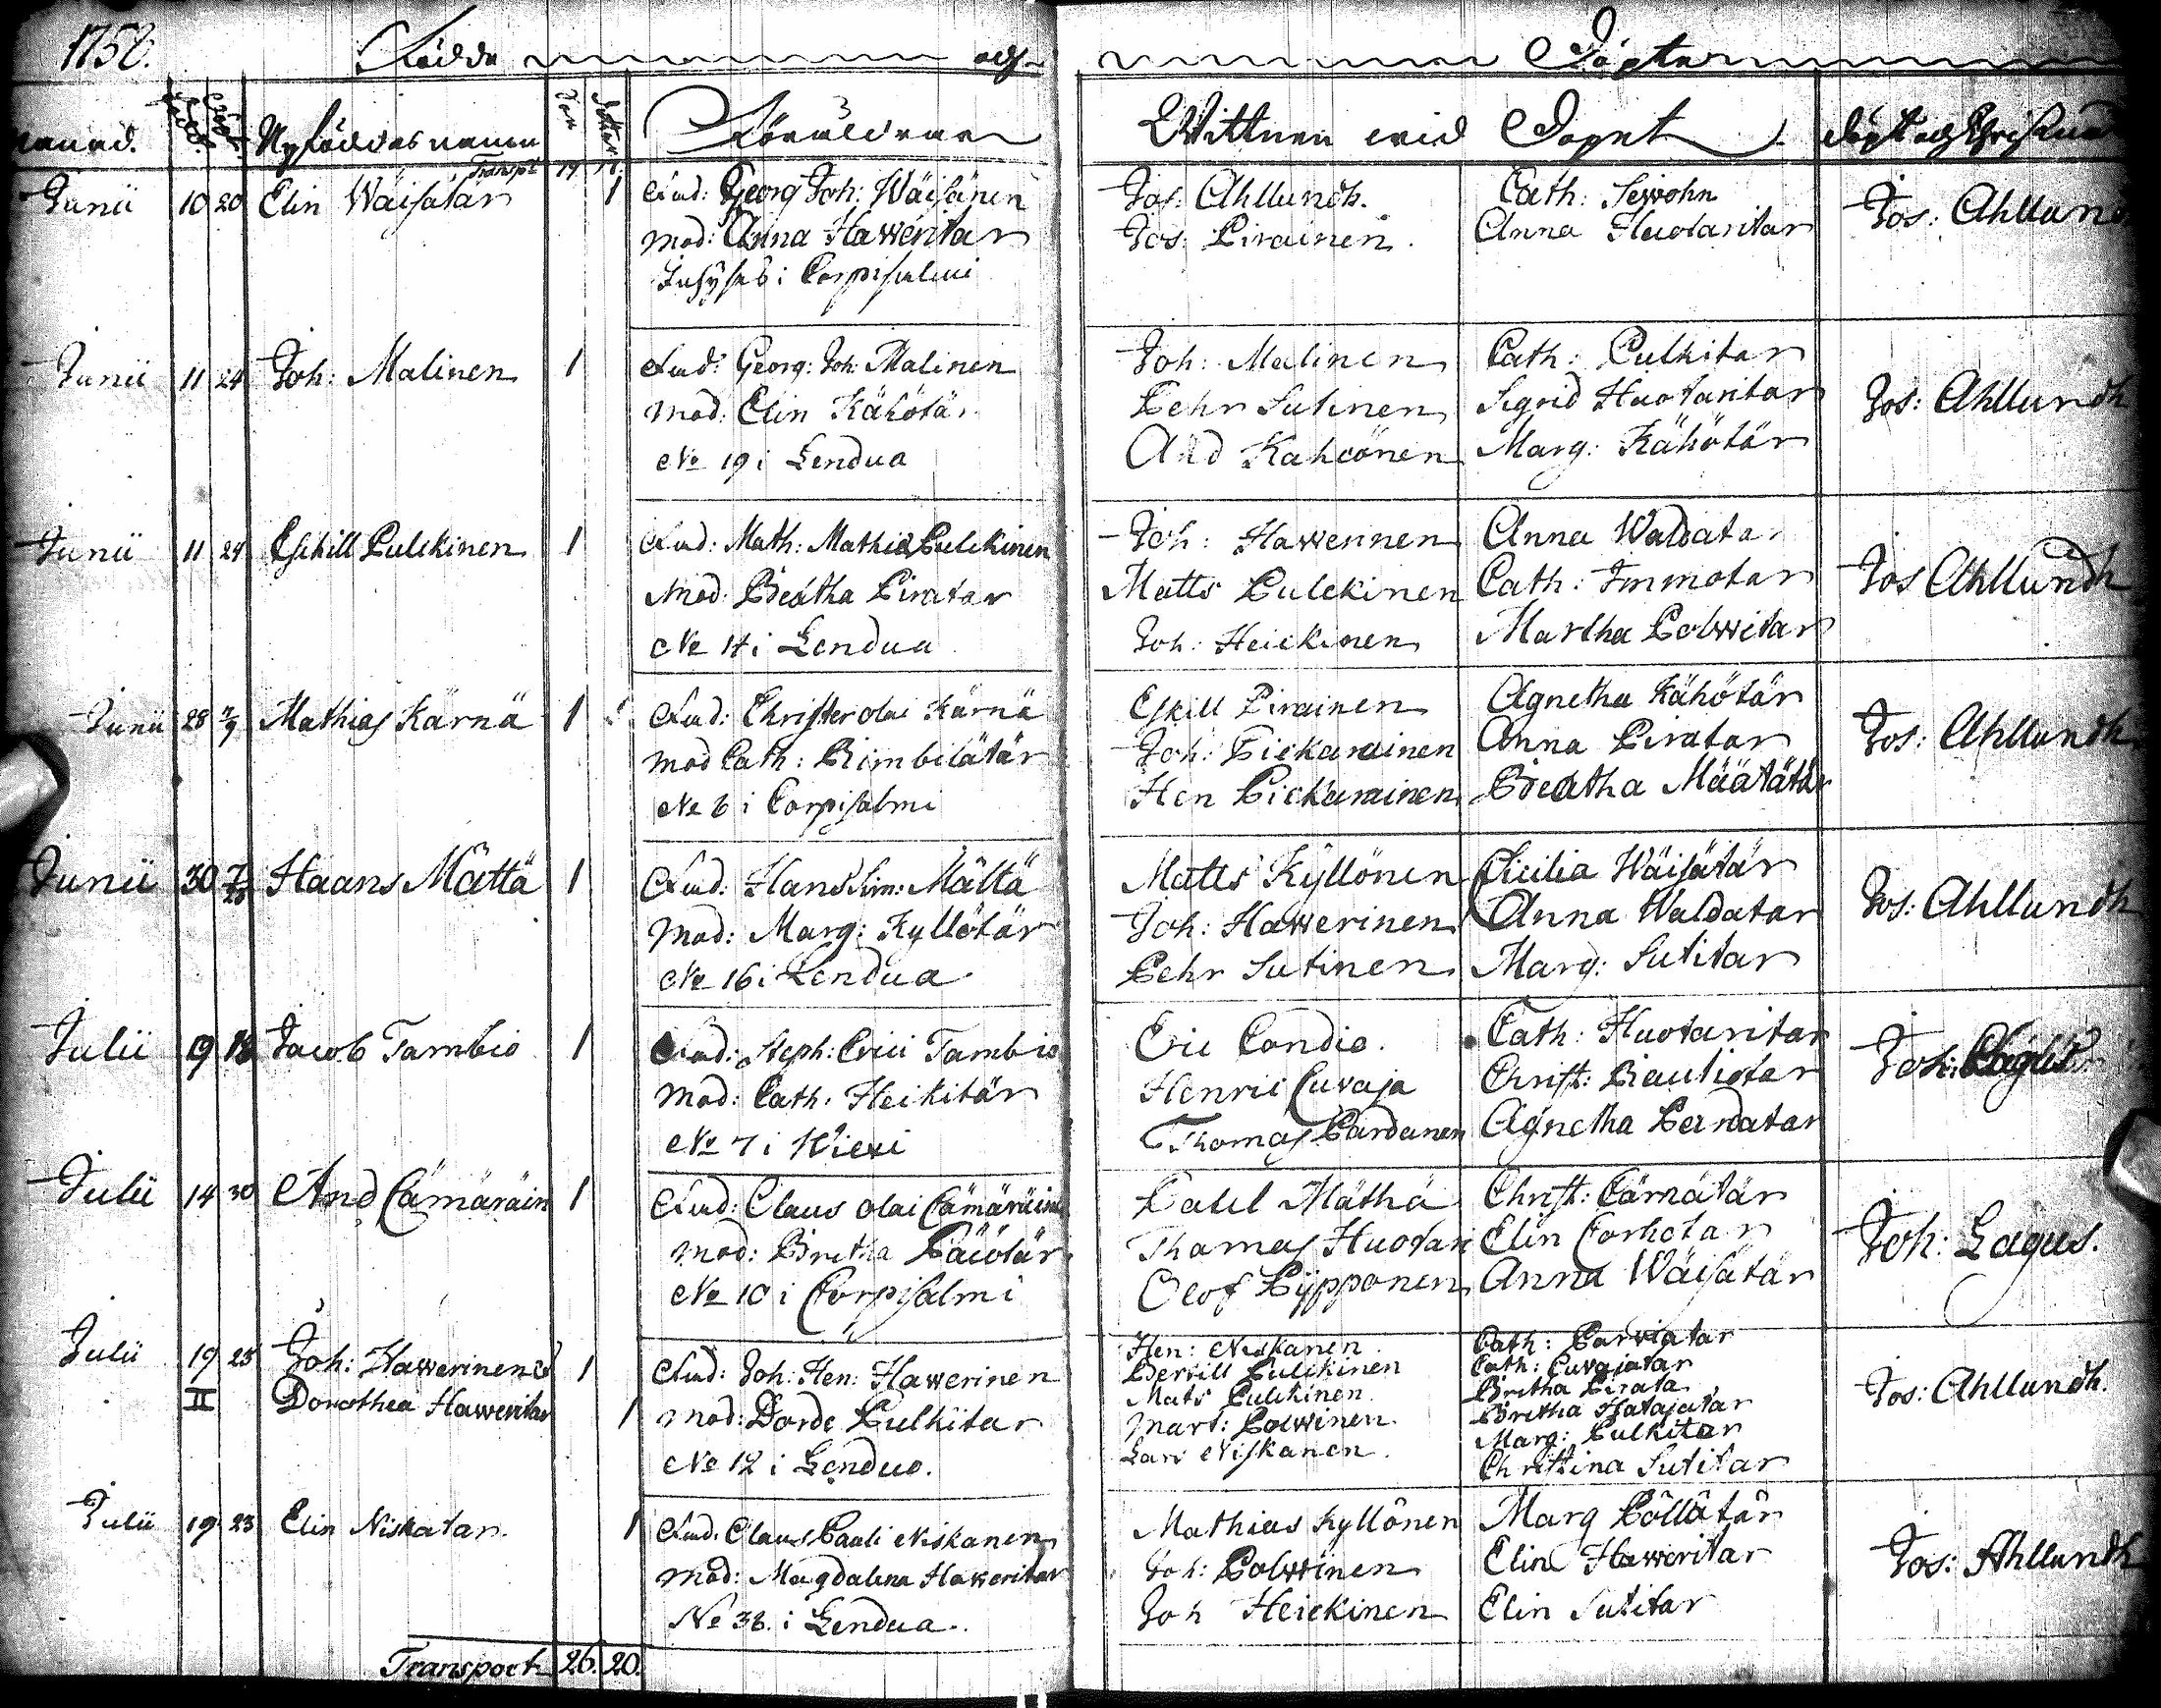 1756. Födde och Döpte
Månad. Född Döpt Nyföddas namn Son Dotter Föräldrar Wittnen wid Dopet
Transpt 19. 17.
Junii 10 20 Elin Wäisätär 1 Fad: Georg Joh: Wäisänen Jos: Ahllundh. Cath:
Mod: Anna Haweritar Jos: Pirainen. Anna Huotaritar Jos: Ahllund
Inhyses i Corpisalmi
Junii 11 24 Joh: Malinen 1 Fad: Georg: Joh: Malinen Joh: Malinen Cath: Pulkitar
Mod: Elin Kähötär Pehr Sutinen Sigrid Huotaritar Jos: Ahllundh
No 19 i Lendua And Kähcönen Marg: Kähötär
Junii 11 24 Eskill Pulckinen 1 Fad: Math: Mathiæ Pulckinen Joh: Hawerinen Anna Waldatar
Mod: Beatha Piratar Matts Pulckinen Cath: Immotar Jos Ahllundh
No 14 i Lendua Joh: Heickinen Martha Polwitar
Junii 28 7/9 Mathias Kärnä 1 Fad: Christer Olai Kärnä Eskill Pirainen Agnetha Kähötär
Mod Cath: Rimbilätär Joh: Pickarainen Anna Piratar Jos: Ahllundh
No 6 i Corpisalmi Hen Pickarainen Beatha Määtätär
Junii 30 Haans Mättä 1 Fad: Hans Sim: Mättä Matts Kyllönen Cicilia Wäisätär
Mod: Marg: Kyllötär Joh: Hawerinen Anna Waldatar Jos: Ahllundh
No 16 i Lendua Pehr Sutinen Marg: Sutitar
Julii 9 18 Jacob Tambio 1 Fad: Steph: Erici Tambio Eric Condio. Cath: Huotaritar
Mod: Cath: Heikitär Henric Cuvaja Christ: Riautiotar Joh:
No 7 i Wiexi Thomas Pardanen Agnetha Pardatar
Julii 14 30 And Cämäräin 1 Fad: Claus Olai Cämäräinen Pahl Mäthä Christ: Cämätär
Mod: Bretha Päiötär Thomas Huotari Elin Corhotar Joh: Lagus.
No 10 i Corpisalmi Olof Pypponen Anna Wäisätär
Julii 19 25 Joh: Hawerinen 1 Fad: Joh: Hen: Hawerinen Hen: Niskanen. Cath: Parviatar
II Dorothea Haweritar 1 Mod: Dorde Pulkitar Bertill Pulckinen Cath: Cuvajatar
No 12 i Lendua. Mats Pulckinen. Bretha Pirata
Mart: Polwinen. Bretha Hatajatar Jos: Ahllundh.
Lars Niskanen. Marg: Pulkitar
Christina Sutitar
Julii 19 23 Elin Niskatar. 1 Fad: Claus Pauli Niskanen Mathias Kyllönen Marg Pöllätär
Mod: Magdalena Haweritar Joh: Polwinen Elin Haweritar Jos: Ahllundh
No 38. i Lendua. Joh Heickinen Elin Sutitar
Transport 26. 20.